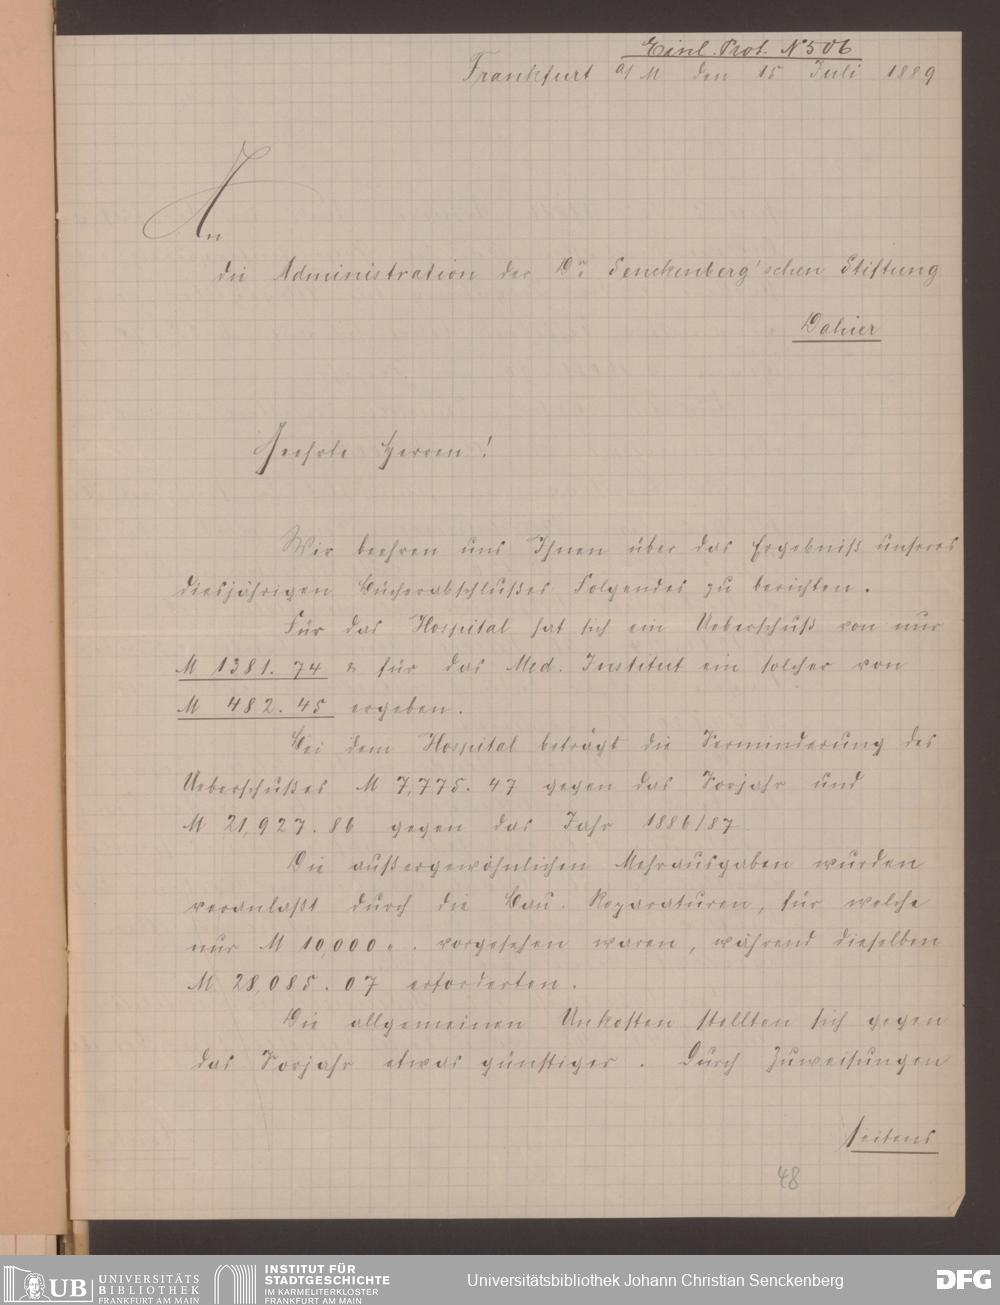 Einl. Prot. N 506
Frankfurt a/M den 15 Juli 1889
An
die Administration der Dr. Senckenberg'schen Stiftung
Dahier
Geehrte Herren!
Wir beehren uns Ihnen über das Ergebniß unseres
diesjährigen Bücherabschlußes Folgendes zu berichten.
Für das Hospital hat sich ein Ueberschuß von nur
M 1381.74 & für das Med. Institut ein solcher von
M 482.45 ergeben.
Bei dem Hospital beträgt die Verminderung des
Ueberschußes M 7,775.47 gegen das Vorjahr und
M 21,927.86 gegen das Jahr 1886/87
Die außergewöhnlichen Mehrausgaben wurden
veranlaßt durch die Bau-Reparaturen, für welche
nur M 10,000.. vorgesehen waren, während dieselben
M. 28,085.07 erforderten.
Die allgemeinen Unkosten stellten sich gegen
das Vorjahr etwas günstiger. Durch Zuweisungen
seitens
48
UB UNIVERSITÄTS
BIBLIOTHEK
FRANKFURT AM MAIN
INSTITUT FÜR
STADTGESCHICHTE
IM KARMELITERKLOSTER
FRANKFURT AM MAIN
Universitätsbibliothek Johann Christian Senckenberg
DFG